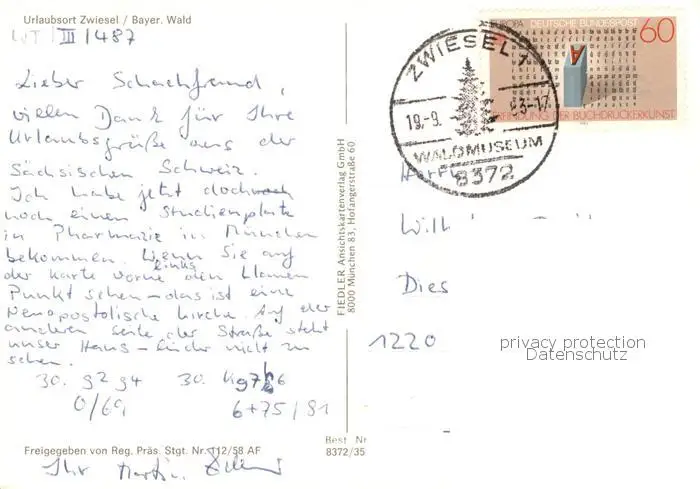 Urlaubsort Zwiesel / Bayer. Wald
WT / III / 487
Lieber Schachfreund,
vielen Dank für Ihre
Urlaubsgrüße aus der
Sächsischen Schweiz.
Ich habe jetzt doch
noch einen Studienplatz
in Pharmazie in München
bekommen. Wenn Sie auf
der Karte vorne links den
Punkt sehen – das ist eine
Neuapostolische Kirche. Auf der
anderen Seite der Straße steht
unser Haus – leider nicht zu
sehen.
30. g2 g4 30. Kg7
0/69 6+75/81
Freigegeben von Reg. Präs. Stgt. Nr. 112/58 AF
Ihr Martin
FIEDLER Ansichtskartenverlag GmbH
8000 München 83, Hofangerstraße 60
Best Nr
8372/35
EUROPA DEUTSCHE BUNDESPOST 60
ERFINDUNG DER BUCHDRUCKERKUNST
ZWIESEL 1
19.-9. 83-17
WALDMUSEUM
8372
Wilh
Dies
1220
privacy protection
Datenschutz